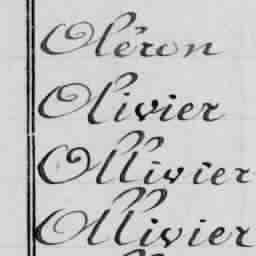 Oléron
Olivier
Ollivier
Ollivier